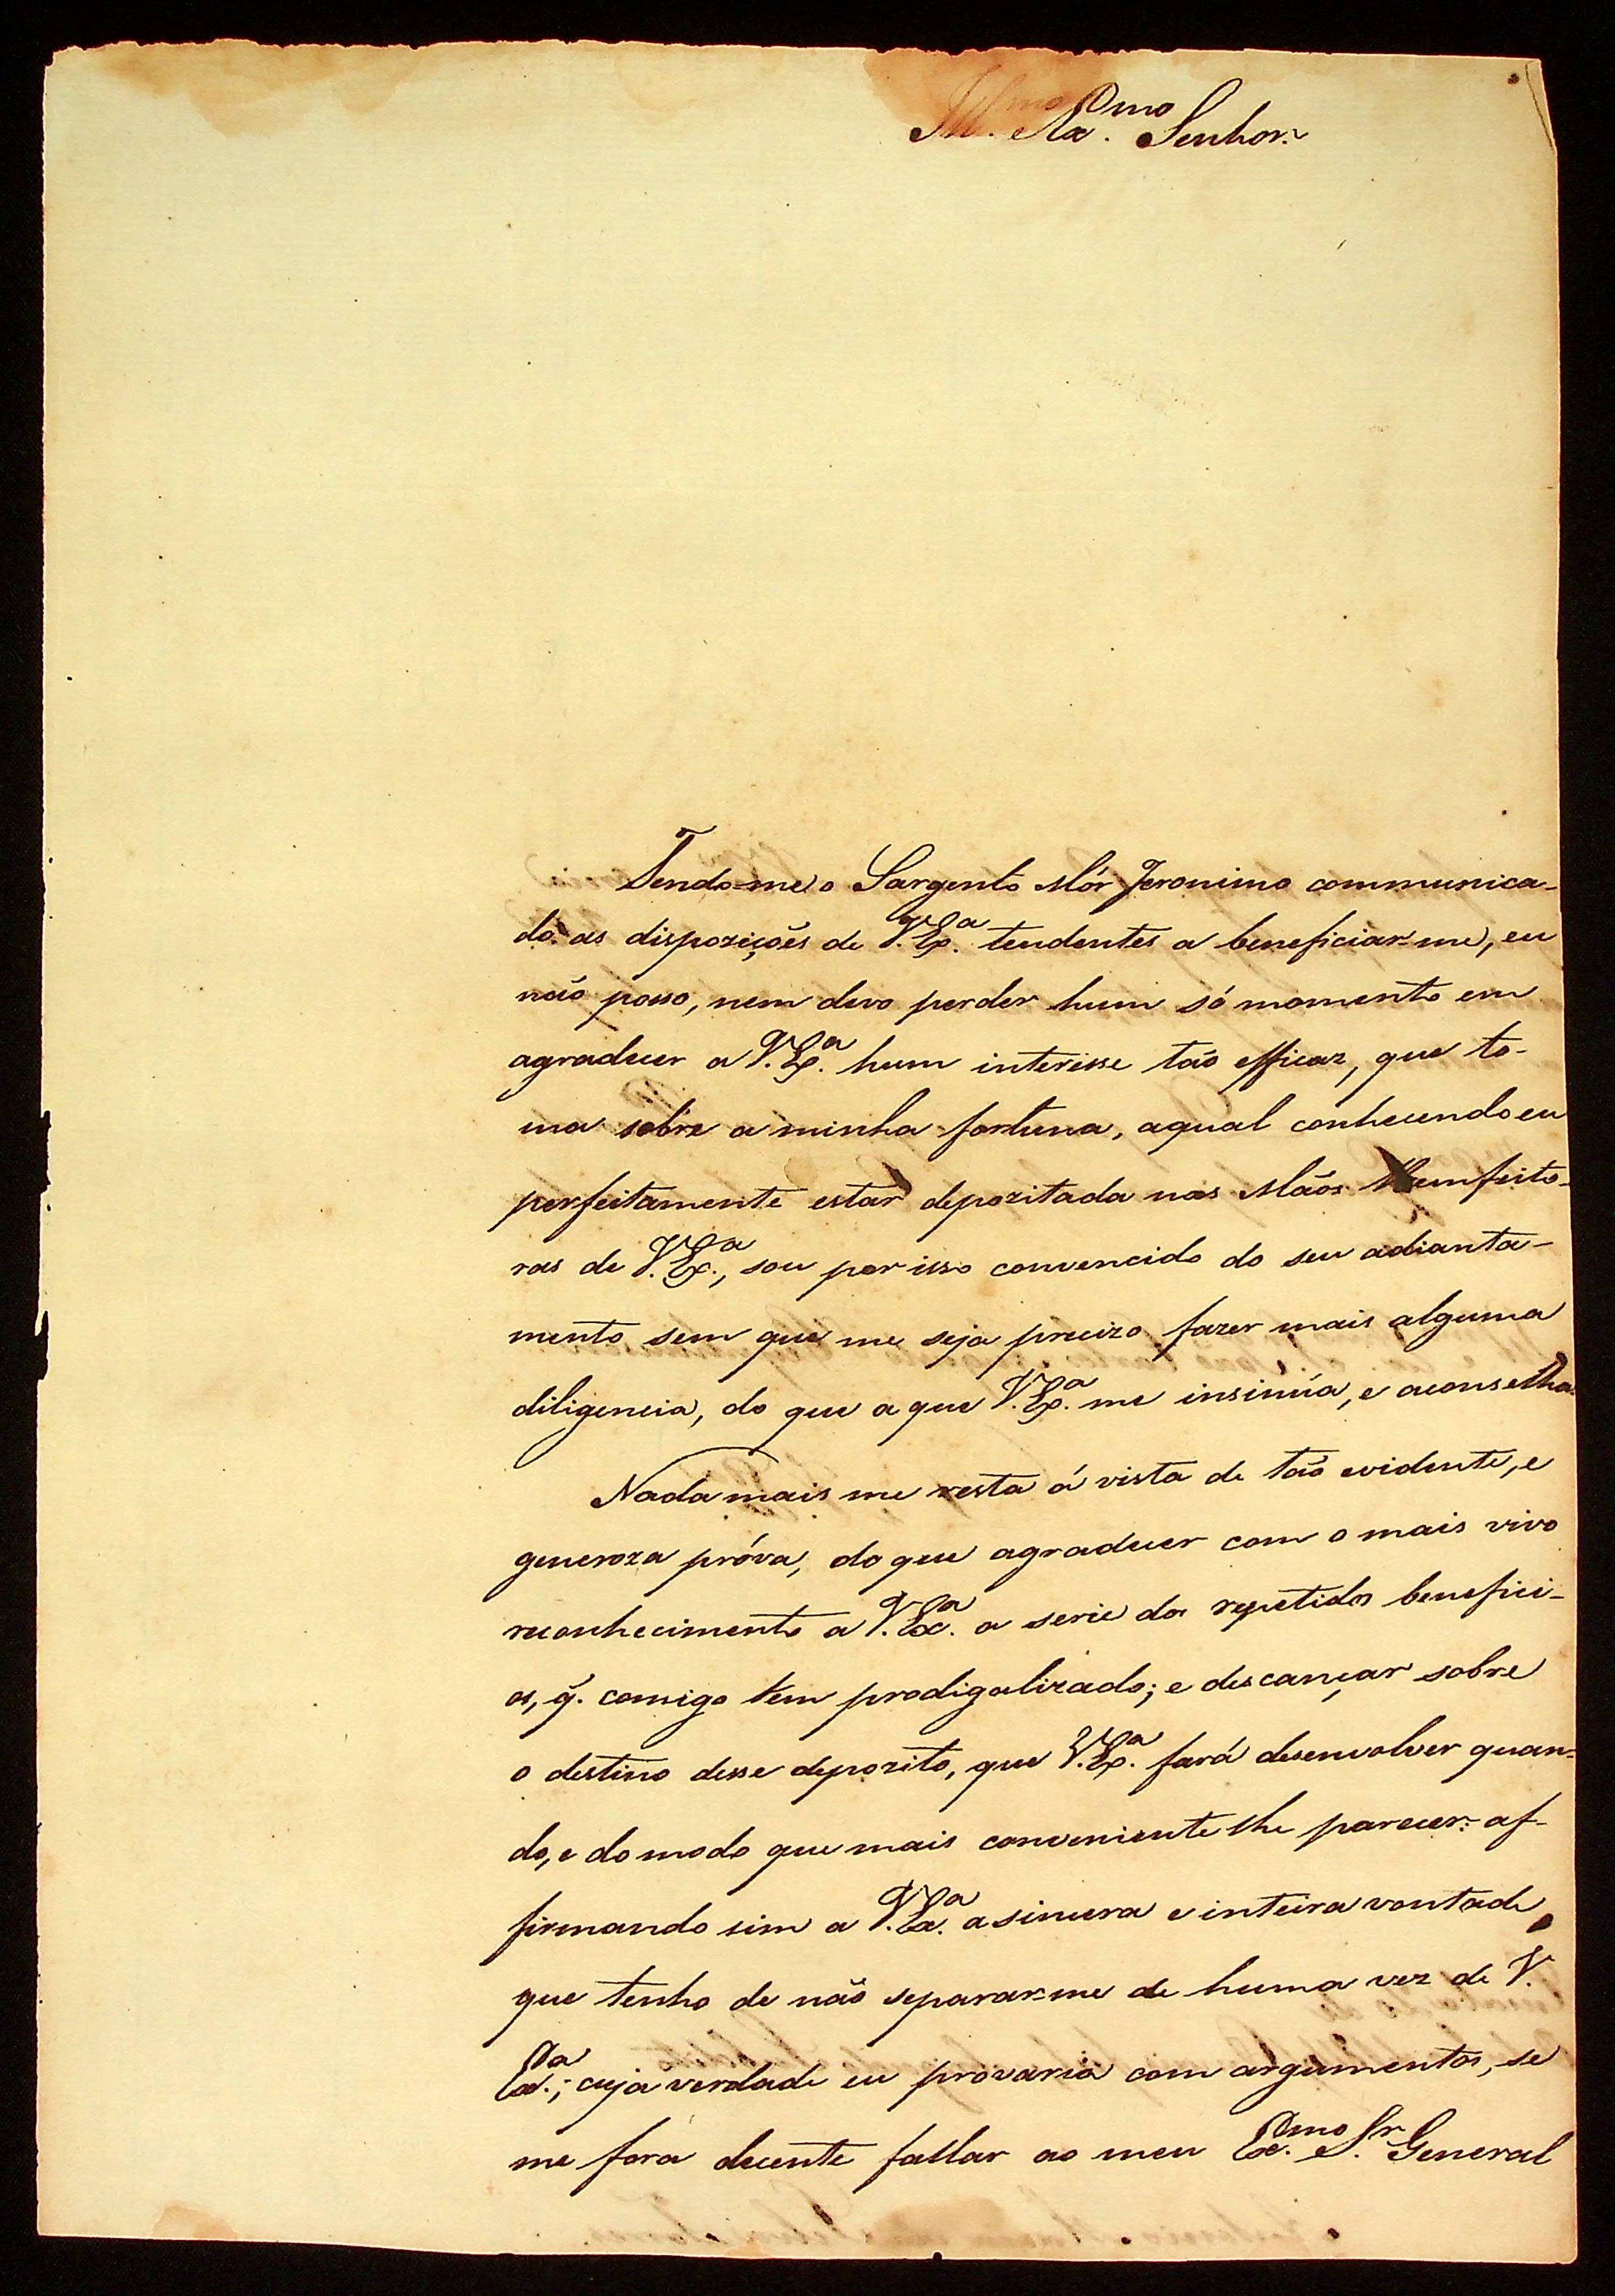 Ill.mo Ex.mo Senhor:
Tendo-me o Sargento Mór Jeronimo communica-
do as dispozições de V. Ex.a tendentes a beneficiar-me, eu
não posso, nem devo perder hum só momento em
agradecer a V. Ex.a hum interisse tão efficaz, que to-
ma sobre a minha fortuna, aqual conhecendo eu
perfeitamente estar depozitada nas Mãos Bemfeito-
ras de V. Ex.a, sou por isso convencido do seu adianta-
mento sem que me seja precizo fazer mais alguma
diligencia, do que a que V. Ex.a me insinúa, e aconselha.
Nada mais me resta á vista de tão evidente, e
generoza próva, do que agradecer com o mais vivo
reconhecimento a V. Ex.a a serie dos repetidos benefici-
os, q̃. comigo tem prodigalizado; e descançar sobre
o destino desse depozito, que V. Ex.a fará desenvolver quan-
do, e do modo que mais conveniente lhe parecer: af-
firmando sim a V. Ex.a a sincera e inteira vontade,
que tenho de não separar-me de huma vez de V.
Ex.a; cuja verdade eu provaria com argumentos, se
me fora decente fallar ao meu Ex.mo S.r General